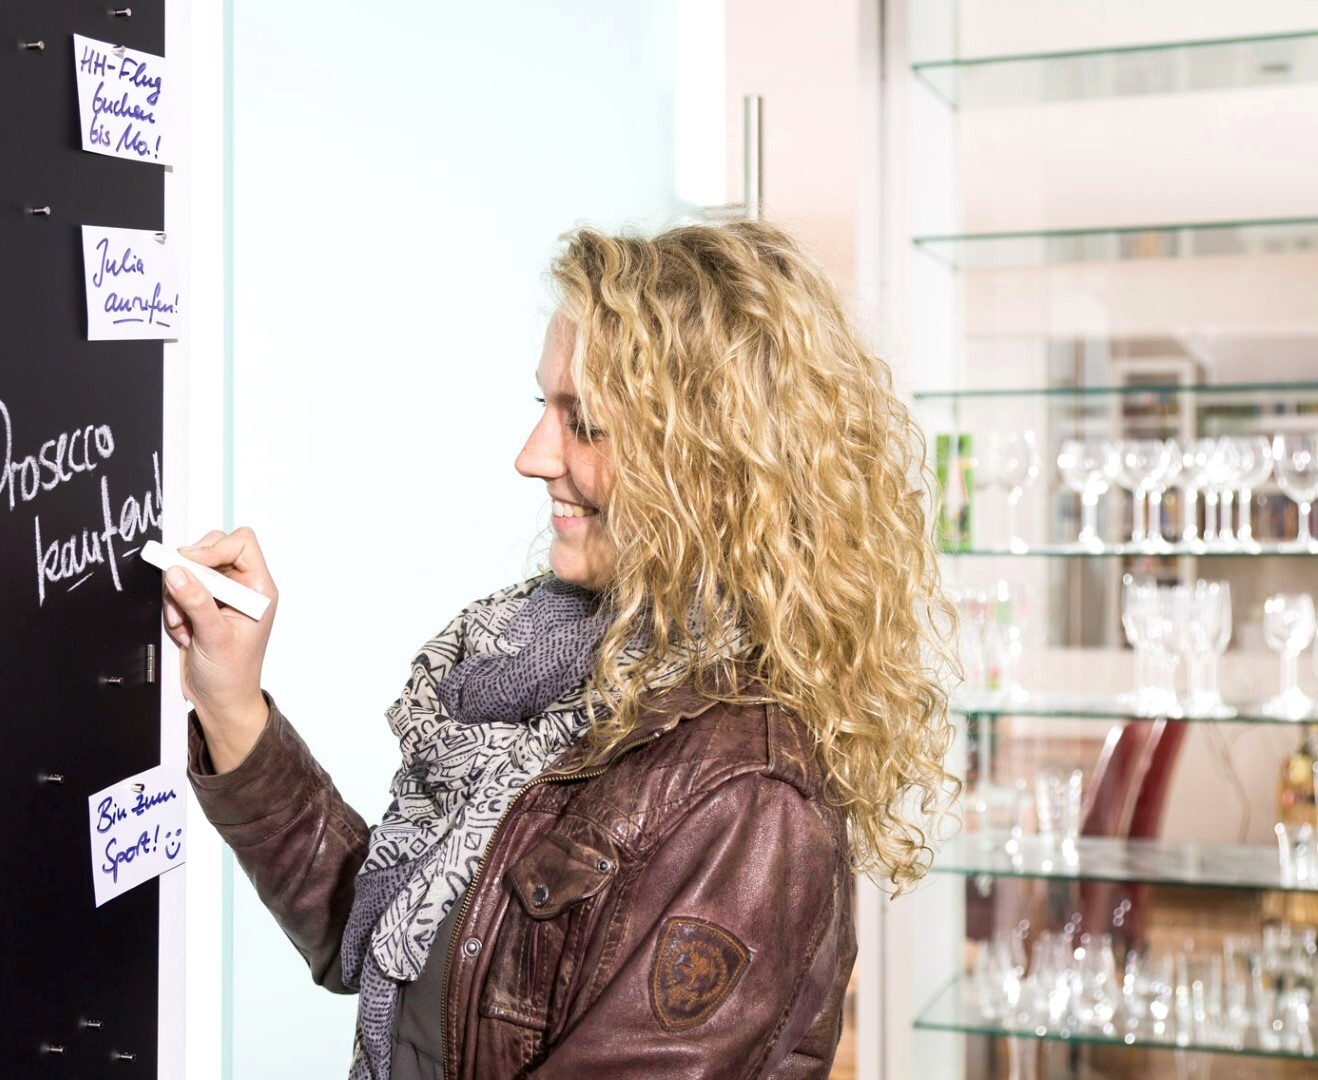 HH-Flug
buchen
bis Mo.!
Julia
anrufen!
Prosecco
kaufen!
Bin zum
Sport!